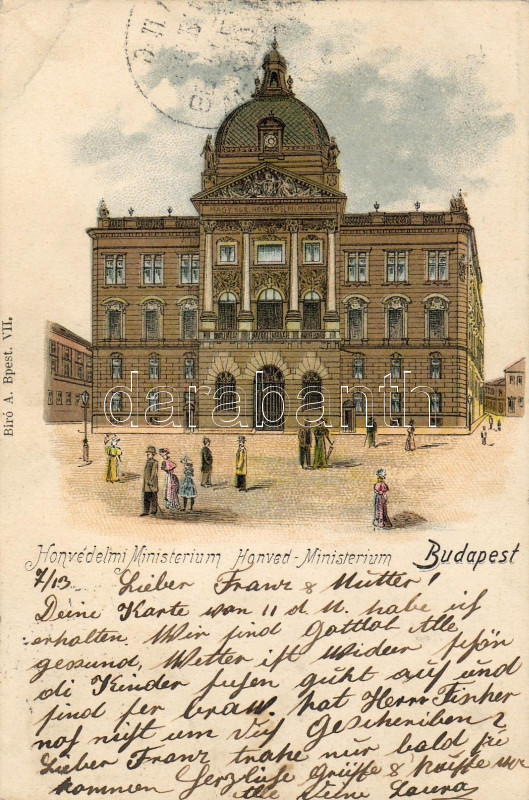 Biró A. Bpest. VII.
darabanth
Honvédelmi Ministerium Honved-Ministerium Budapest
7/13 Lieber Franz & Mutter!
Deine Karte von 11 d M. habe ich
erhalten Wir sind Gottlob Alle
gesund, Wetter ist wider schön
di Kinder guht auf und
sind ser braw. hat Herr Fischer
noch nicht um Dich Geschrieben?
Lieber Franz trahe nur bald zu
kommen Herzliche Grüsse & Küsse
Alle Deine Laura